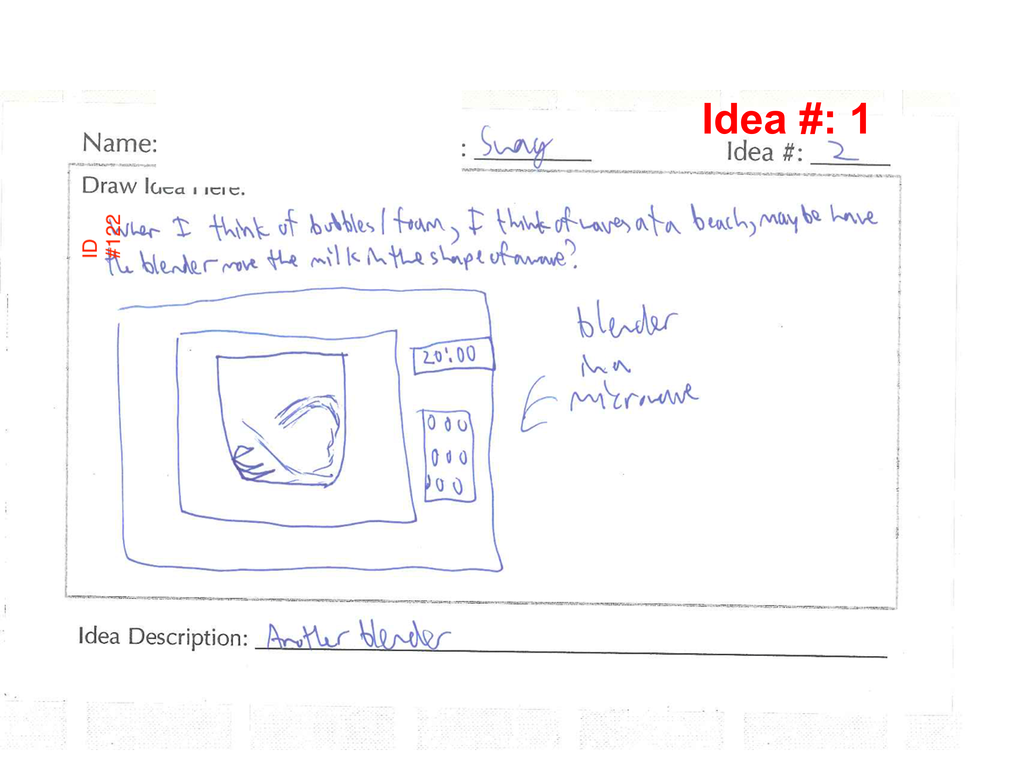 Idea #: 1
Name:
: Swag
Idea #: 2
Draw Idea Here:
ID #122
When I think of bubbles/foam, I think of waves at a beach, maybe have
the blender move the milk in the shape of a wave?
blender
in a
microwave
20:00
000
000
000
Idea Description: Another blender